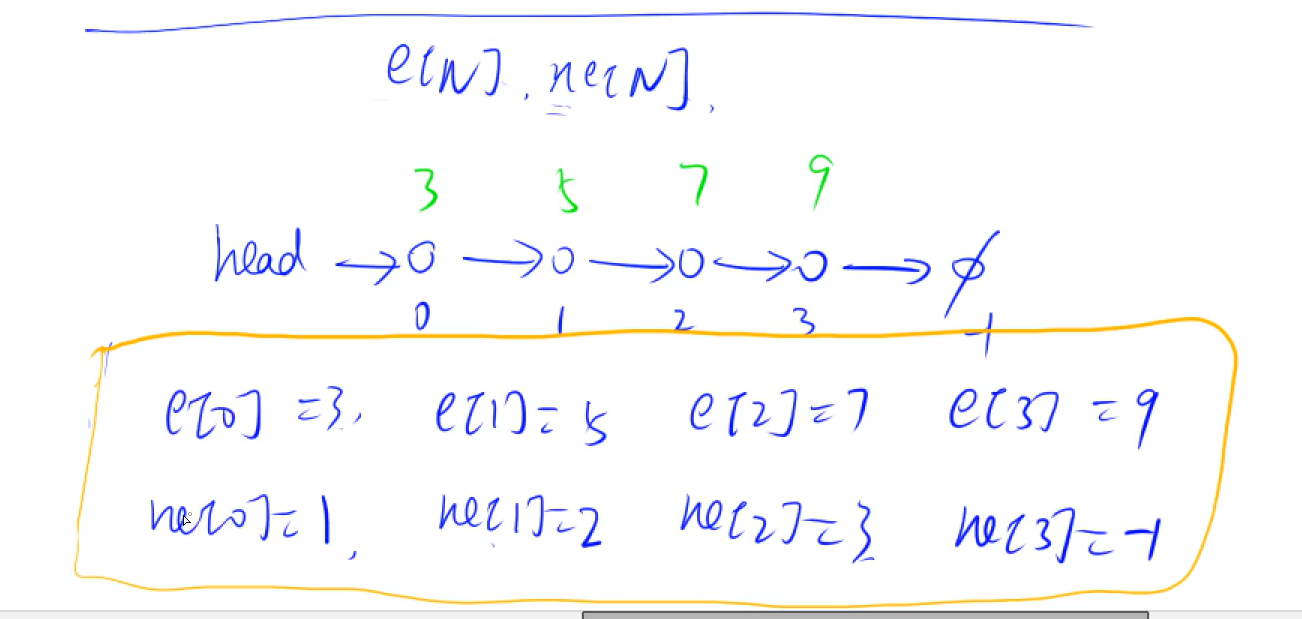 e[N], ne[N],
3 5 7 9
head → 0 → 0 → 0 → 0 → ∅
0 1 2 3 -1
e[0] = 3, e[1] = 5 e[2] = 7 e[3] = 9
ne[0] = 1, ne[1] = 2 ne[2] = 3 ne[3] = -1